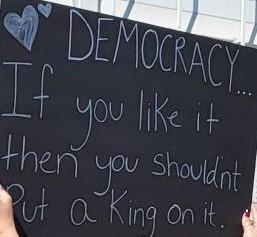 DEMOCRACY...
If you like it
then you shouldnt
Put a King on it.